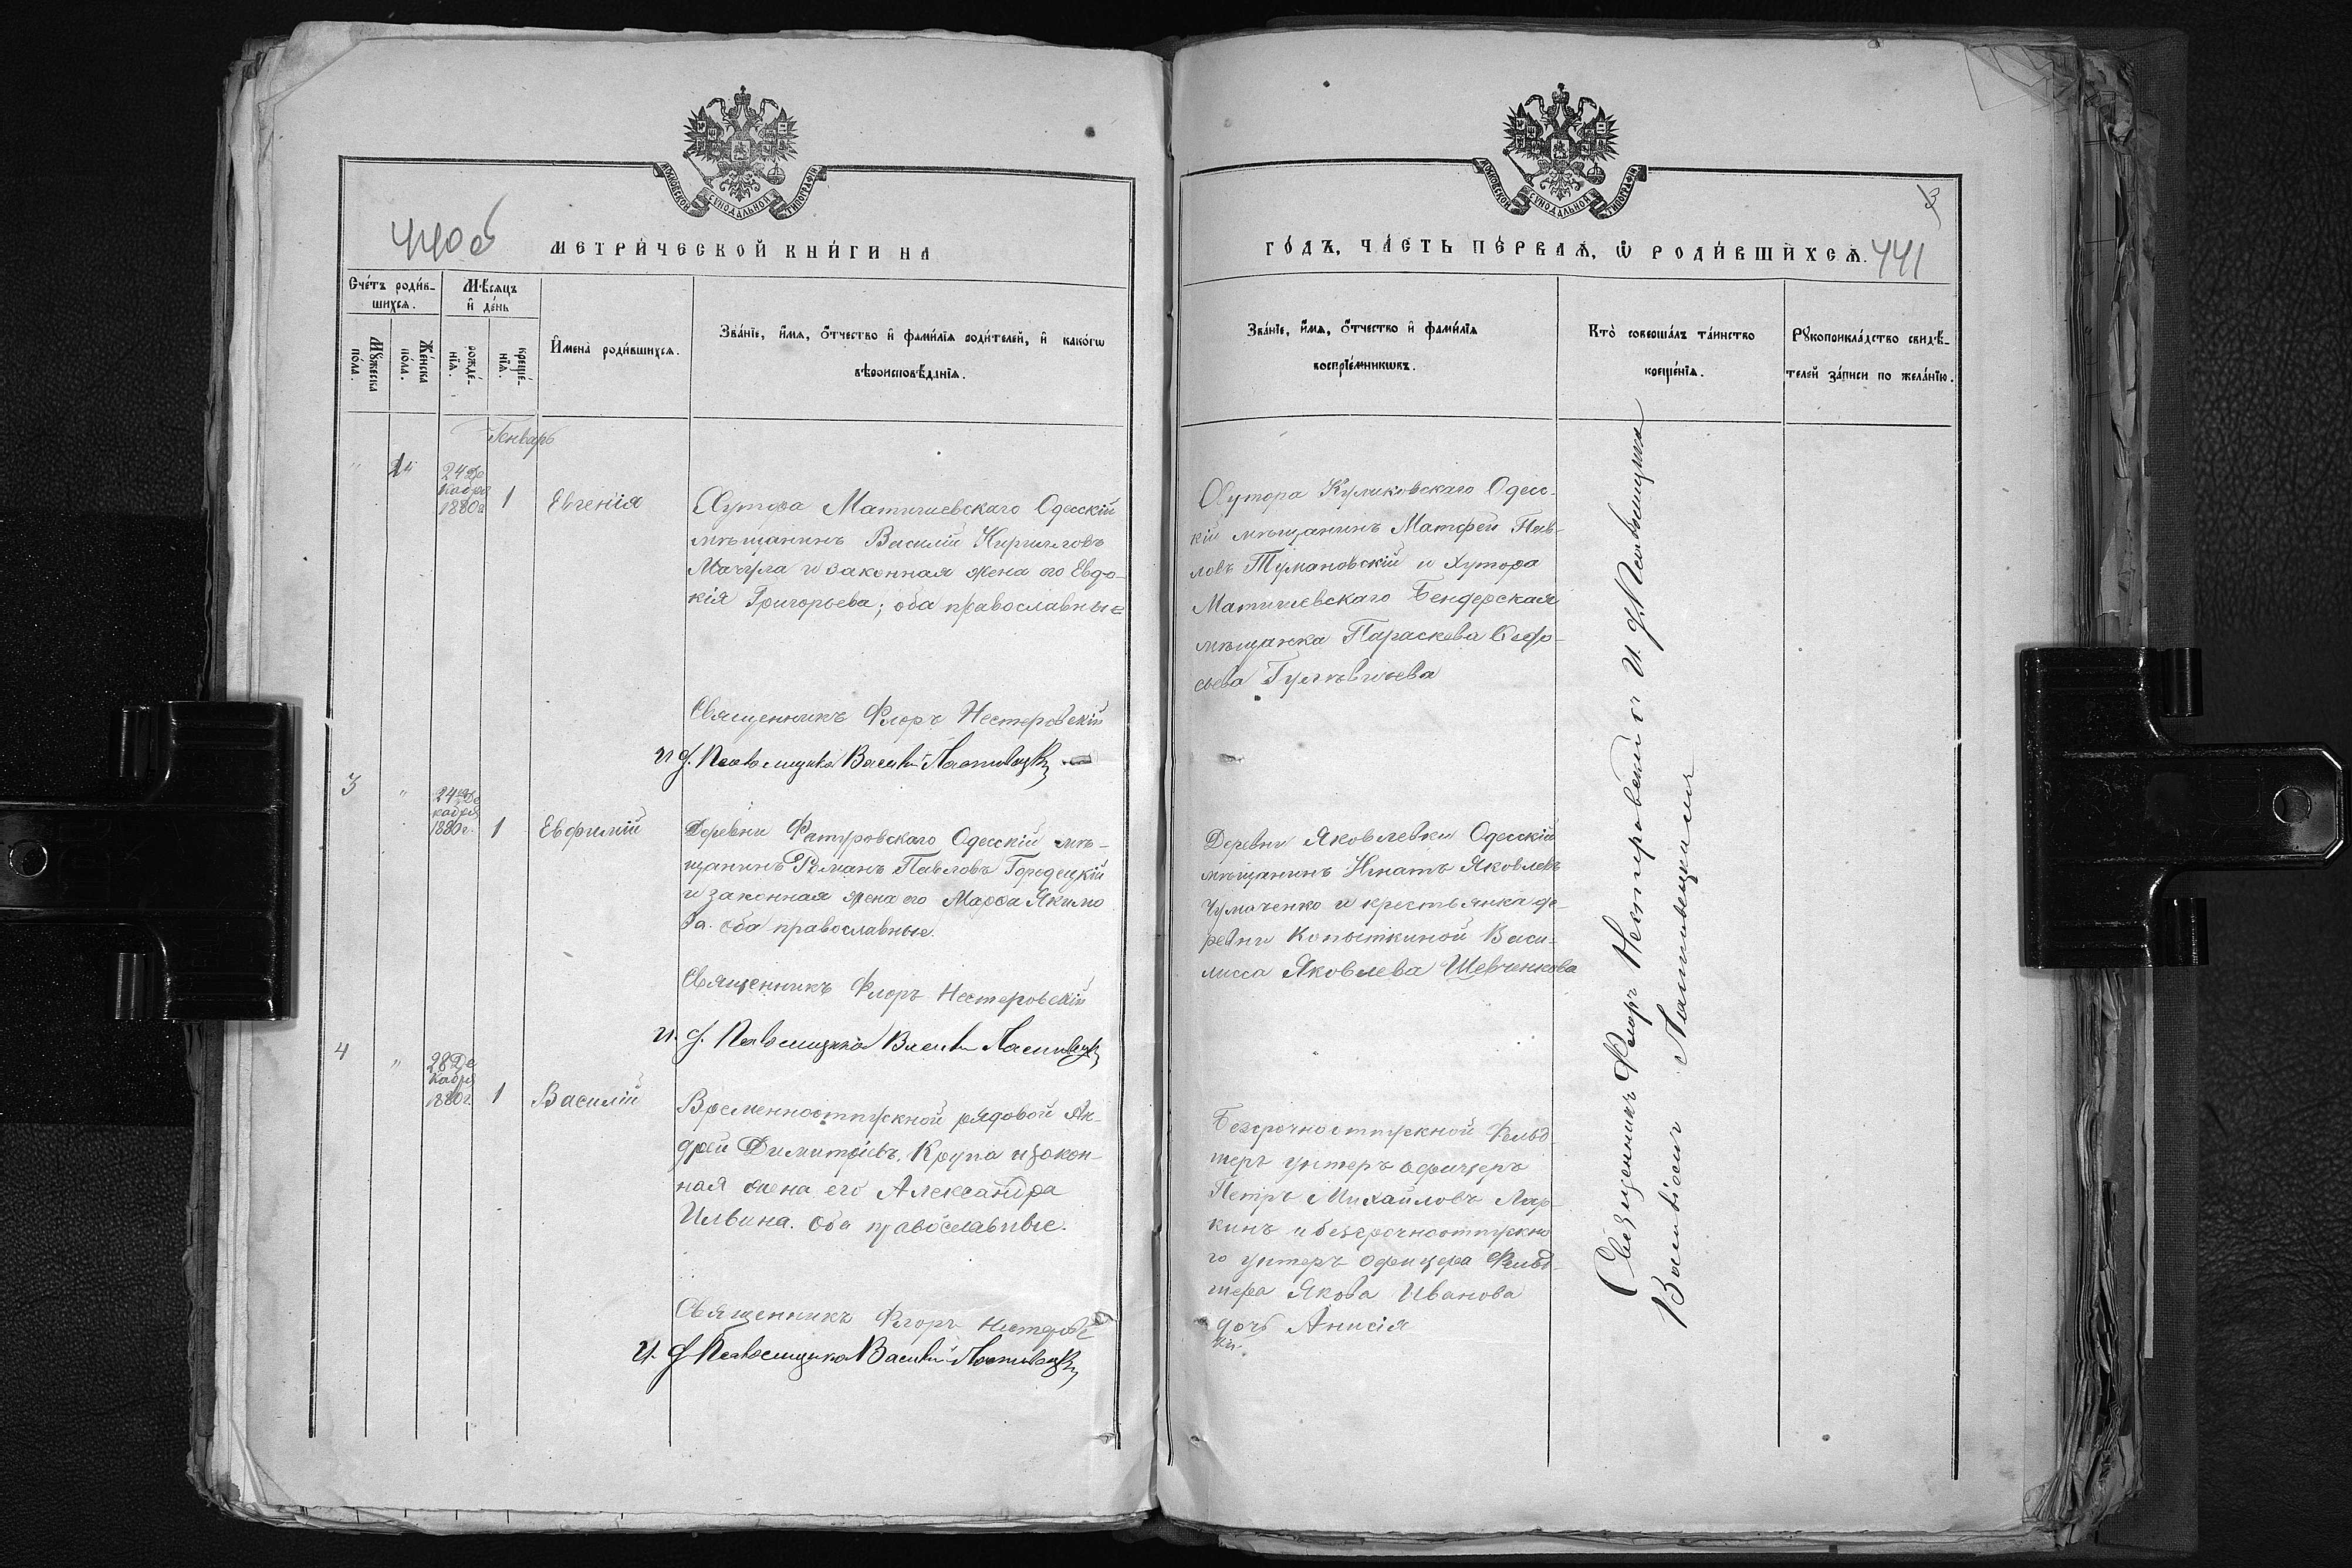 МОСКОВСКОЙ СѴНОДАЛЬНОЙ ТИПОГРАФІИ
440об
МЕТРИ́ЧЕСКОЙ КНИ́ГИ НА
Сче́тъ роди́в-
шихсѧ.
Мѣ́сѧцъ
и҆ де́нь
Мꙋ́жеска
по́ла.
Же́нска
по́ла.
рожде́-
нїѧ.
креще́-
нїѧ.
И҆мена̀ роди́вшихсѧ.
Зва́нїе, и҆́мѧ, ѻ҆́тчество и҆ фами́лїѧ роди́телей, и҆ како́гѡ
вѣроисповѣ́данїѧ.
Январь
" 2 "
24 Де
кабря
1880 г
1
Евгенія
Хутора Матигиевскаго Одесскій
мѣщанинъ Василій Кирилловъ
Мачула и законная жена его Евдо-
кія Григорьева; оба православные
Священникъ Флоръ Нестеровскій
И. д. Псаломщика Василій Ластовецкій
3 "
24 Де
кабря
1880 г.
1
Евфимій
Деревни Фатуровскаго Одесскій мѣ-
щанинъ Романъ Павловъ Городецкій
и законная жена его Марфа Якимо
ва. оба православные.
Священникъ Флоръ Нестеровскій
И. д. Псаломщика Василій Ластовецкій
4 "
28 Де
кабря
1880 г.
1
Василій
Временноотпускной рядовой Ан-
дрей Димитріевъ Крупа и закон-
ная жена его Александра
Ильина. Оба православные.
Священникъ Флоръ Нестеровс
кій
И. д. Псаломщика Василій Ластовецкій
МОСКОВСКОЙ СѴНОДАЛЬНОЙ ТИПОГРАФІИ
3
ГО́ДЪ, ЧА́СТЬ ПЕ́РВАѦ, Ѡ҆ РОДИ́ВШИХСѦ.
441
Зва́нїе, и҆́мѧ, ѻ҆́тчество и҆ фами́лїѧ
воспрїе́мникѡвъ.
Кто̀ соверша́лъ та́инство
креще́нїѧ.
Рꙋкоприкла́дство свидѣ́-
телей за́писи по жела́нїю.
Хутора Куликовскаго Одесс-
кій мѣщанинъ Матфей Пав-
ловъ Тумановскій и Хутора
Матигиевскаго Бендерская
мѣщанка Параскева
Деревни Яковлевки Одесскій
мѣщанинъ Игнатъ Яковлевъ
Чумаченко и крестьянка де-
ревни Копыткиной Васи-
лисса Яковлева Шевченкова
Безсрочноотпускной Фельд-
шеръ унтеръ офицеръ
Петръ Михайловъ Лар-
кинъ и безсрочноотпускно
го унтеръ офицера Фельд-
шера Якова Иванова
дочь Анисія
Священникъ Флоръ Нестеровскій съ И. д. Псаломщика
Василіемъ Ластовецкимъ